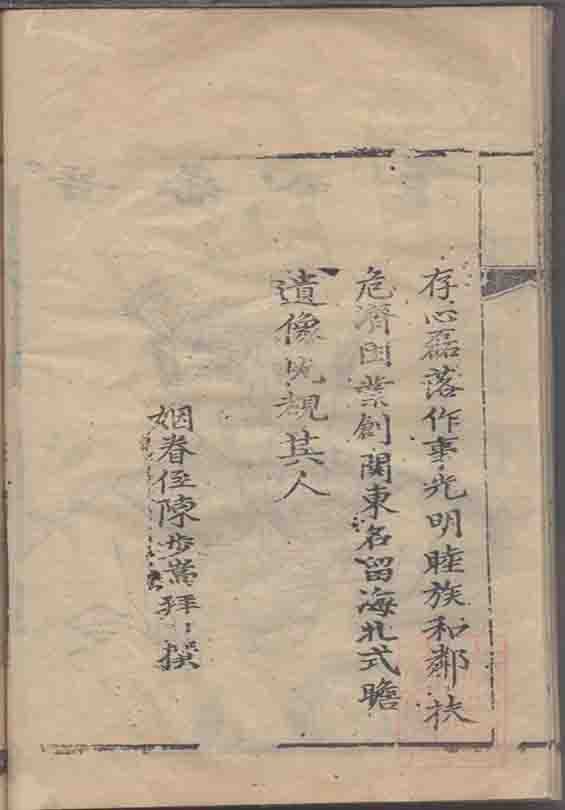 存心磊落作事光明睦族和鄰扶
危濟困業創関東名留海北式瞻
遺像恍覩其人
姻眷侄陳步拜〻撰